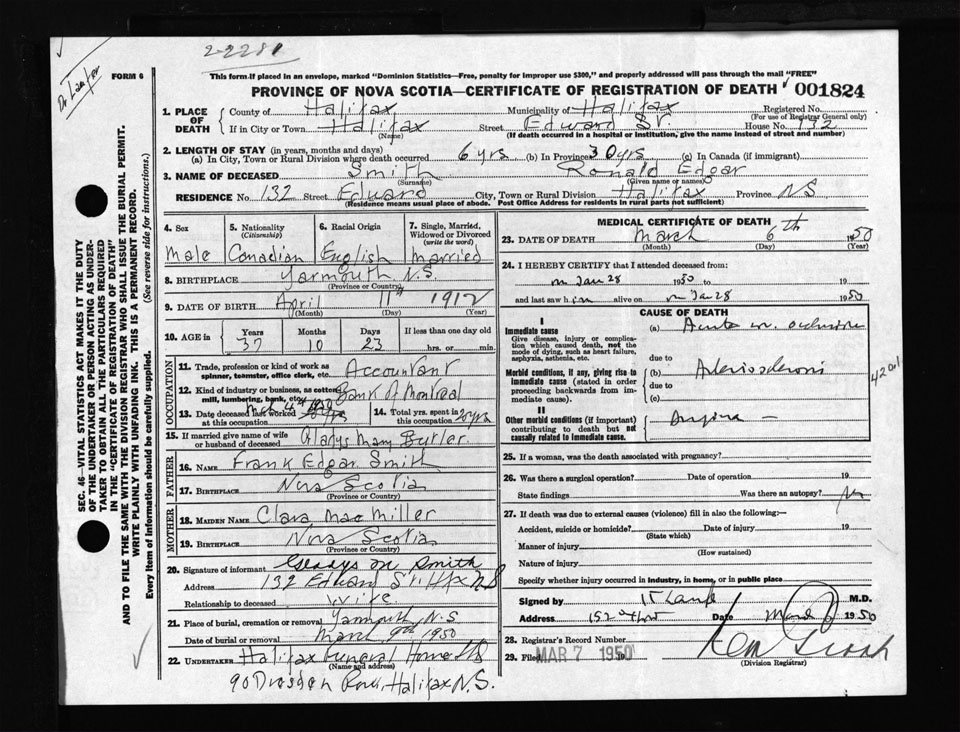 2-2281
Dr Laufer
FORM 6
This form if placed in an envelope, marked "Dominion Statistics—Free, penalty for improper use $300," and properly addressed will pass through the mail "FREE"
PROVINCE OF NOVA SCOTIA—CERTIFICATE OF REGISTRATION OF DEATH 001824
1. PLACE OF DEATH
County of Halifax Municipality of Halifax Registered No.
(For use of Registrar General only)
If in City or Town Halifax Street Edward St. House No. 132
(Name) (If death occurred in a hospital or institution, give the name instead of street and number)
2. LENGTH OF STAY (in years, months and days)
(a) In City, Town or Rural Division where death occurred 6 yrs (b) In Province 30 yrs (c) In Canada (if immigrant)
3. NAME OF DECEASED Smith Ronald Edgar
(Surname) (Given name or names)
RESIDENCE No. 132 Street Edward City, Town or Rural Division Halifax Province NS
(Residence means usual place of abode. Post Office Address for residents in rural parts not sufficient)
4. Sex 5. Nationality (Citizenship) 6. Racial Origin 7. Single, Married, Widowed or Divorced (write the word)
Male Canadian English Married
8. BIRTHPLACE Yarmouth N.S.
(Province or Country)
9. DATE OF BIRTH April 11th 1912
(Month) (Day) (Year)
10. AGE in Years Months Days If less than one day old
37 10 23 hrs. or min.
OCCUPATION
11. Trade, profession or kind of work as spinner, teamster, office clerk, etc. Accountant
12. Kind of industry or business, as cotten mill, lumbering, bank, etc. Bank of Montreal
13. Date deceased last worked at this occupation 14. Total yrs. spent in this occupation
15. If married give name of wife or husband of deceased Gladys Mary Butler
FATHER
16. NAME Frank Edgar Smith
17. BIRTHPLACE Nova Scotia
(Province or Country)
MOTHER
18. MAIDEN NAME Clara Mac Miller
19. BIRTHPLACE Nova Scotia
(Province or Country)
20. Signature of informant Gladys M Smith
Address 132 Edward St Hfx NS
Relationship to deceased Wife
21. Place of burial, cremation or removal Yarmouth N.S
Date of burial or removal March 9th 1950
22. UNDERTAKER Halifax Funeral Home
(Name and address)
90 Dresden Row, Halifax N.S.
MEDICAL CERTIFICATE OF DEATH
23. DATE OF DEATH March 6th 1950
(Month) (Day) (Year)
24. I HEREBY CERTIFY that I attended deceased from:
on Jan 28 1950 to 19
and last saw him alive on on Jan 28 1950
CAUSE OF DEATH
I
Immediate cause (a) Acute
Give disease, injury or complication which caused death, not the mode of dying, such as heart failure, asphyxia, asthenia, etc.
due to
Morbid conditions, if any, giving rise to immediate cause (stated in order proceeding backwards from immediate cause)
(b) Arteriosclerosis
due to
(c)
4201
II
Other morbid conditions (if important) contributing to death but not causally related to immediate cause.
Angina —
25. If a woman, was the death associated with pregnancy?
26. Was there a surgical operation? Date of operation 19
State findings Was there an autopsy? No
27. If death was due to external causes (violence) fill in also the following:—
Accident, suicide or homicide? Date of injury 19
(State which)
Manner of injury
(How sustained)
Nature of injury
Specify whether injury occurred in industry, in home, or in public place
Signed by M.D.
Address Date March 1950
28. Registrar's Record Number
29. Filed MAR 7 1950 19
(Division Registrar)
SEC. 46—VITAL STATISTICS ACT MAKES IT THE DUTY
OF THE UNDERTAKER OR PERSON ACTING AS UNDER-
TAKER TO OBTAIN ALL THE PARTICULARS REQUIRED
IN THE "CERTIFICATE OF REGISTRATION OF DEATH"
AND TO FILE THE SAME WITH THE DIVISION REGISTRAR WHO SHALL ISSUE THE BURIAL PERMIT.
WRITE PLAINLY WITH UNFADING INK. THIS IS A PERMANENT RECORD.
Every item of information should be carefully supplied. (See reverse side for instructions.)